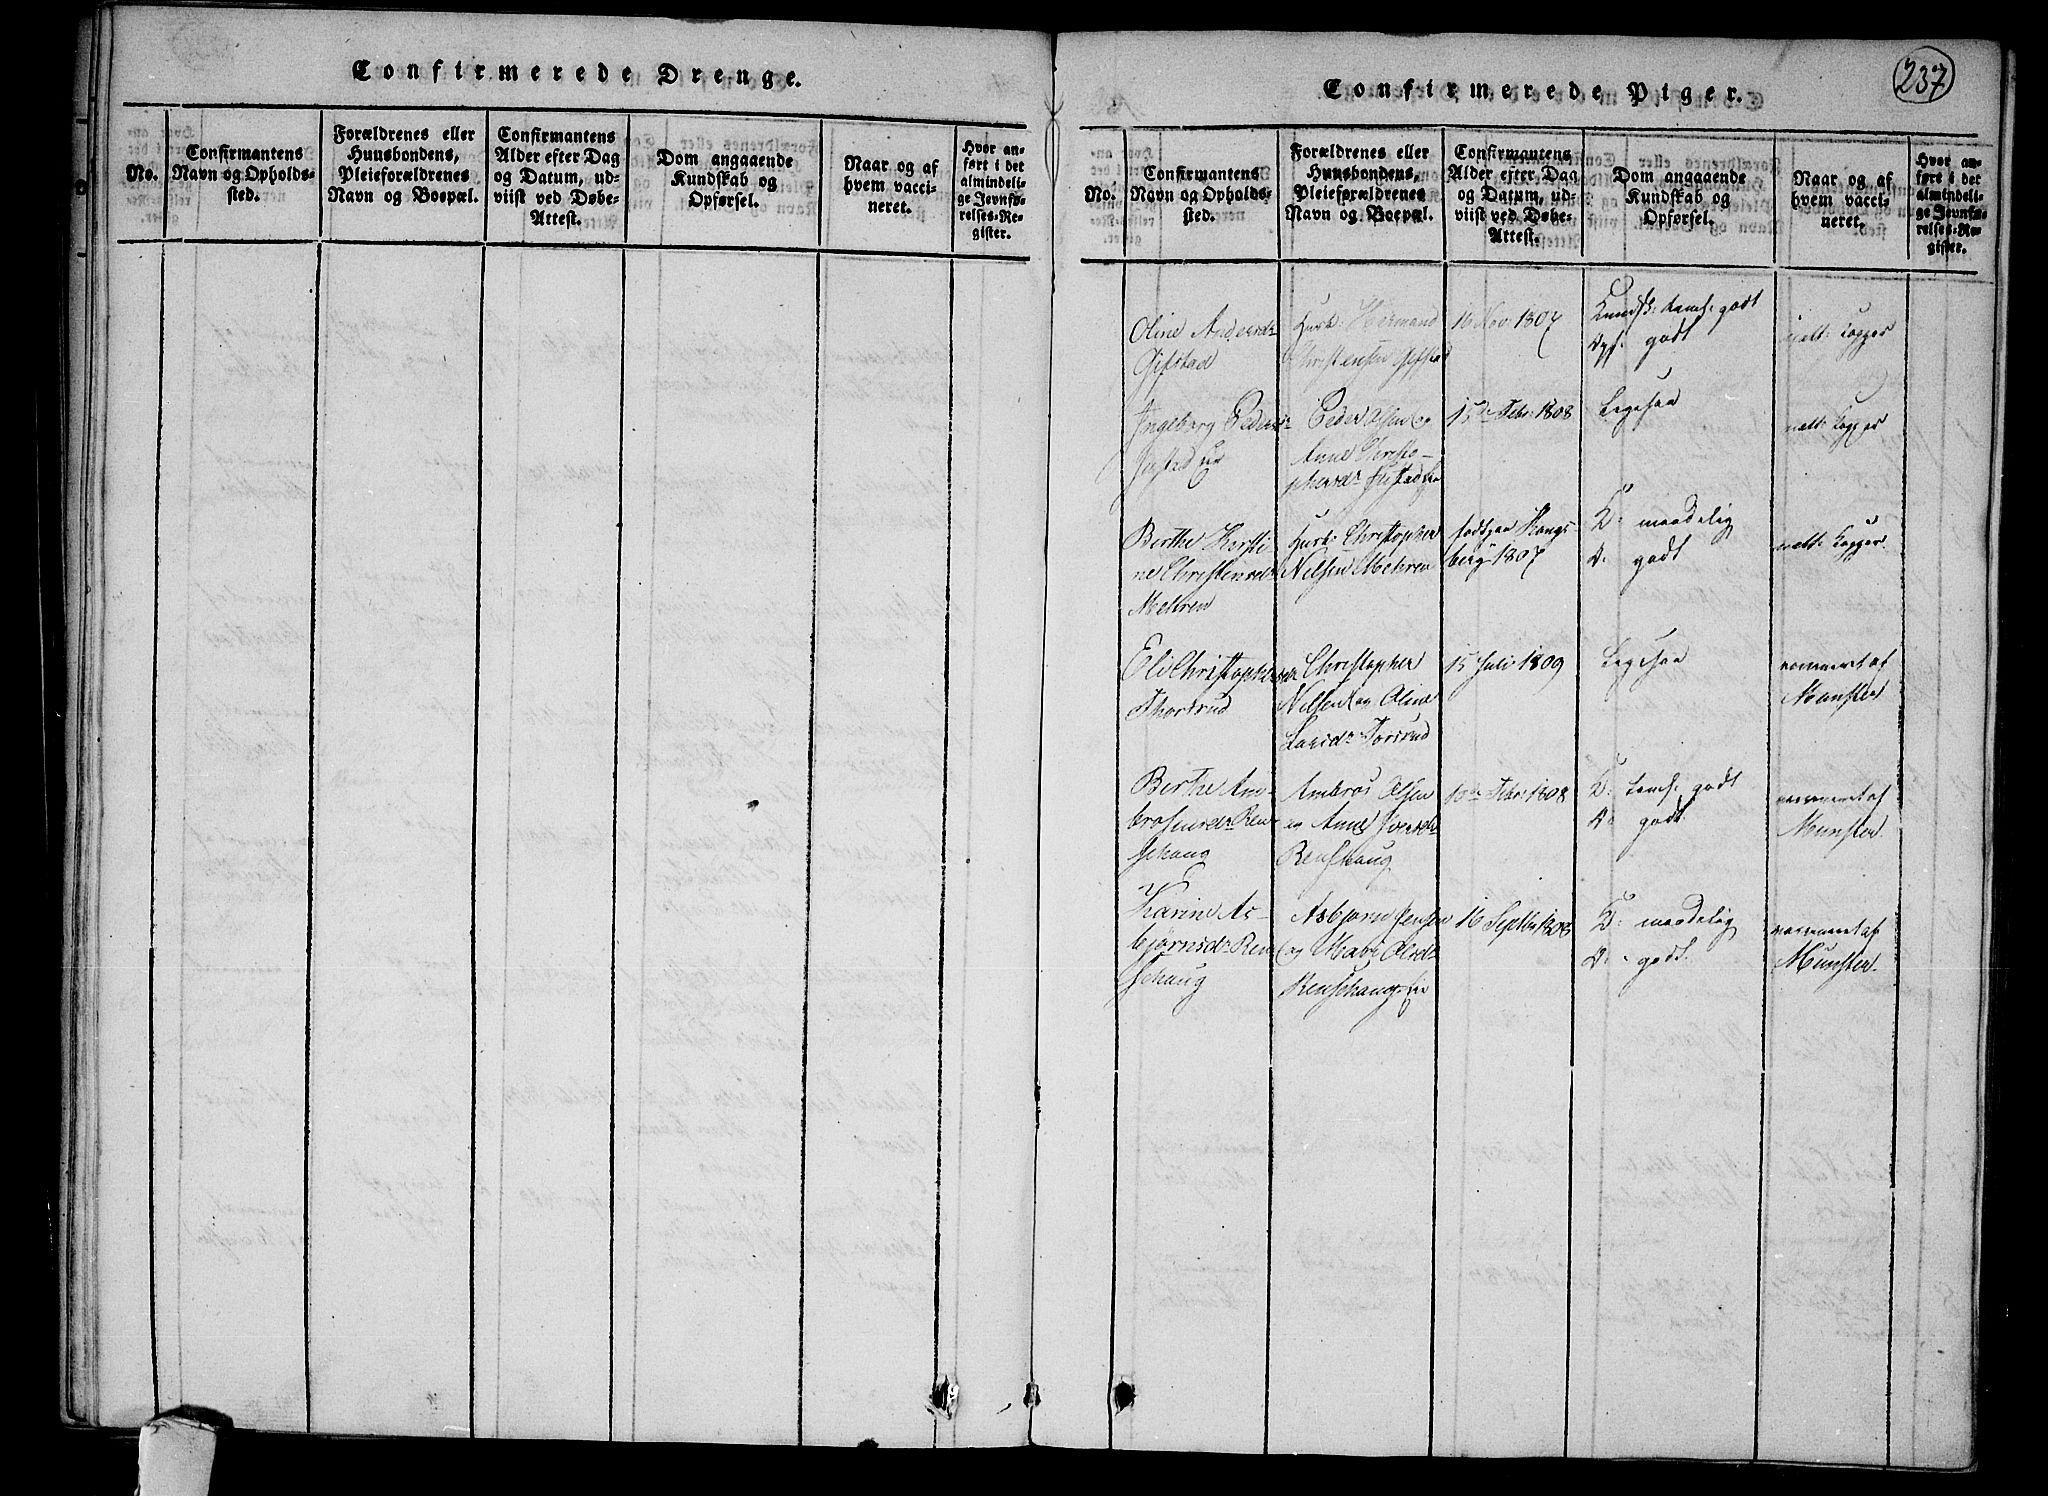 Confirmerede Drenge.
No.
Confirmantens
Navn og Opholds-
sted.
Forældrenes eller
Huusbondens,
Pleieforældrenes
Navn og Bopæl.
Confirmantens
Alder efter Dag
og Datum, ud-
viist ved Døbe-
Attest.
Dom angaaende
Kundskab og
Opførsel.
Naar og af
hvem vacci-
neret.
Hvor an-
ført i det
almindeli-
ge Jevnfø-
relses-Re-
gister.
Confirmerede Piger.
237
No.
Confirmantens
Navn og Opholds-
sted.
Forældrenes eller
Huusbondens,
Pleieforældrenes
Navn og Bopæl.
Confirmantens
Alder efter Dag
og Datum, ud-
viist ved Døbe-
Attest.
Dom angaaende
Kundskab og
Opførsel.
Naar og af
hvem vacci-
neret.
Hvor an-
ført i det
almindeli-
ge Jevnfø-
relses-Re-
gister.
Oline Andersdr
Gifstad
Husb: Hermand
Christensen Gifstad
16 Nov: 1807
Kundsk: temf: godt
Opf: godt
natt: Kopper
Ingeborg Pedersdr
Peder Olsen og
Anne Christo-
phersdr
15de Febr: 1808
Ligesaa
natt: Kopper
Berthe Kirsti-
ne Christensdr
Mehren
Husb: Christopher
Nilsen Mehren
født paa Kongs
berg 1807
K: maadelig
O: godt
natt: Kopper
Eli Christophersdr
Thorsrud
Christopher
Nilsen og Oline
Larsdr Torsrud
15 Juli 1809
Ligesaa
vaccineret af
Munster
Berthe Am-
brosiusdr Ren-
sehaug
Ambros Olsen
og Anne Iversdr
Rensehaug
10de Febr: 1808
K: temf: godt
O: godt
vaccineret af
Munster
Karine As-
bjørnsdr Ren-
sehaug
Asbjørn Jensen
og Mari Olsdr
Rensehaug
16 Septbr 1808
K: maadelig
O: godt.
vaccineret af
Munster